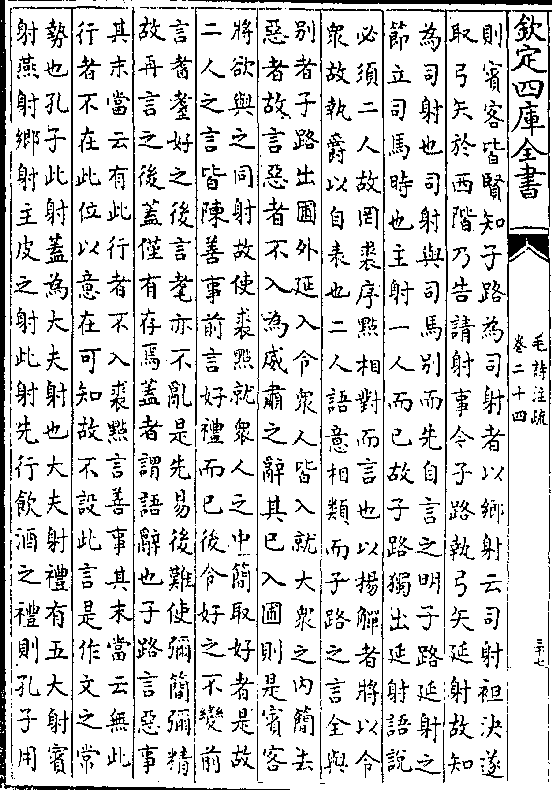 欽定四庫全書
毛詩注疏
卷二十四
三十七
則賓客皆賢知子路為司射者以鄉射云司射袒決遂
取弓矢於西階乃告請射事令子路執弓矢延射故知
為司射也司射與司馬別而先自言之明子路延射之
節立司馬時也主射一人而已故子路獨出延射語說
必須二人故罔裘序點相對而言也以揚觶者將以令
衆故執爵以自表也二人語意相類而子路之言全與
別者子路出圃外延入令衆人皆入就大衆之内簡去
惡者故言惡者不入為威肅之辭其已入圃則是賓客
將欲與之同射故使裘點就衆人之中簡取好者是故
二人之言皆陳善事前言好禮而已後令好之不變前
言耆耋好之後言耄亦不亂是先易後難使彌簡彌精
故再言之後蓋僅有存焉蓋者謂語辭也子路言惡事
其末當云有此行者不入裘點言善事其末當云無此
行者不在此位以意在可知故不設此言是作文之常
勢也孔子此射蓋為大夫射也大夫射禮有五大射賓
射燕射鄉射主皮之射此射先行飲酒之禮則孔子用